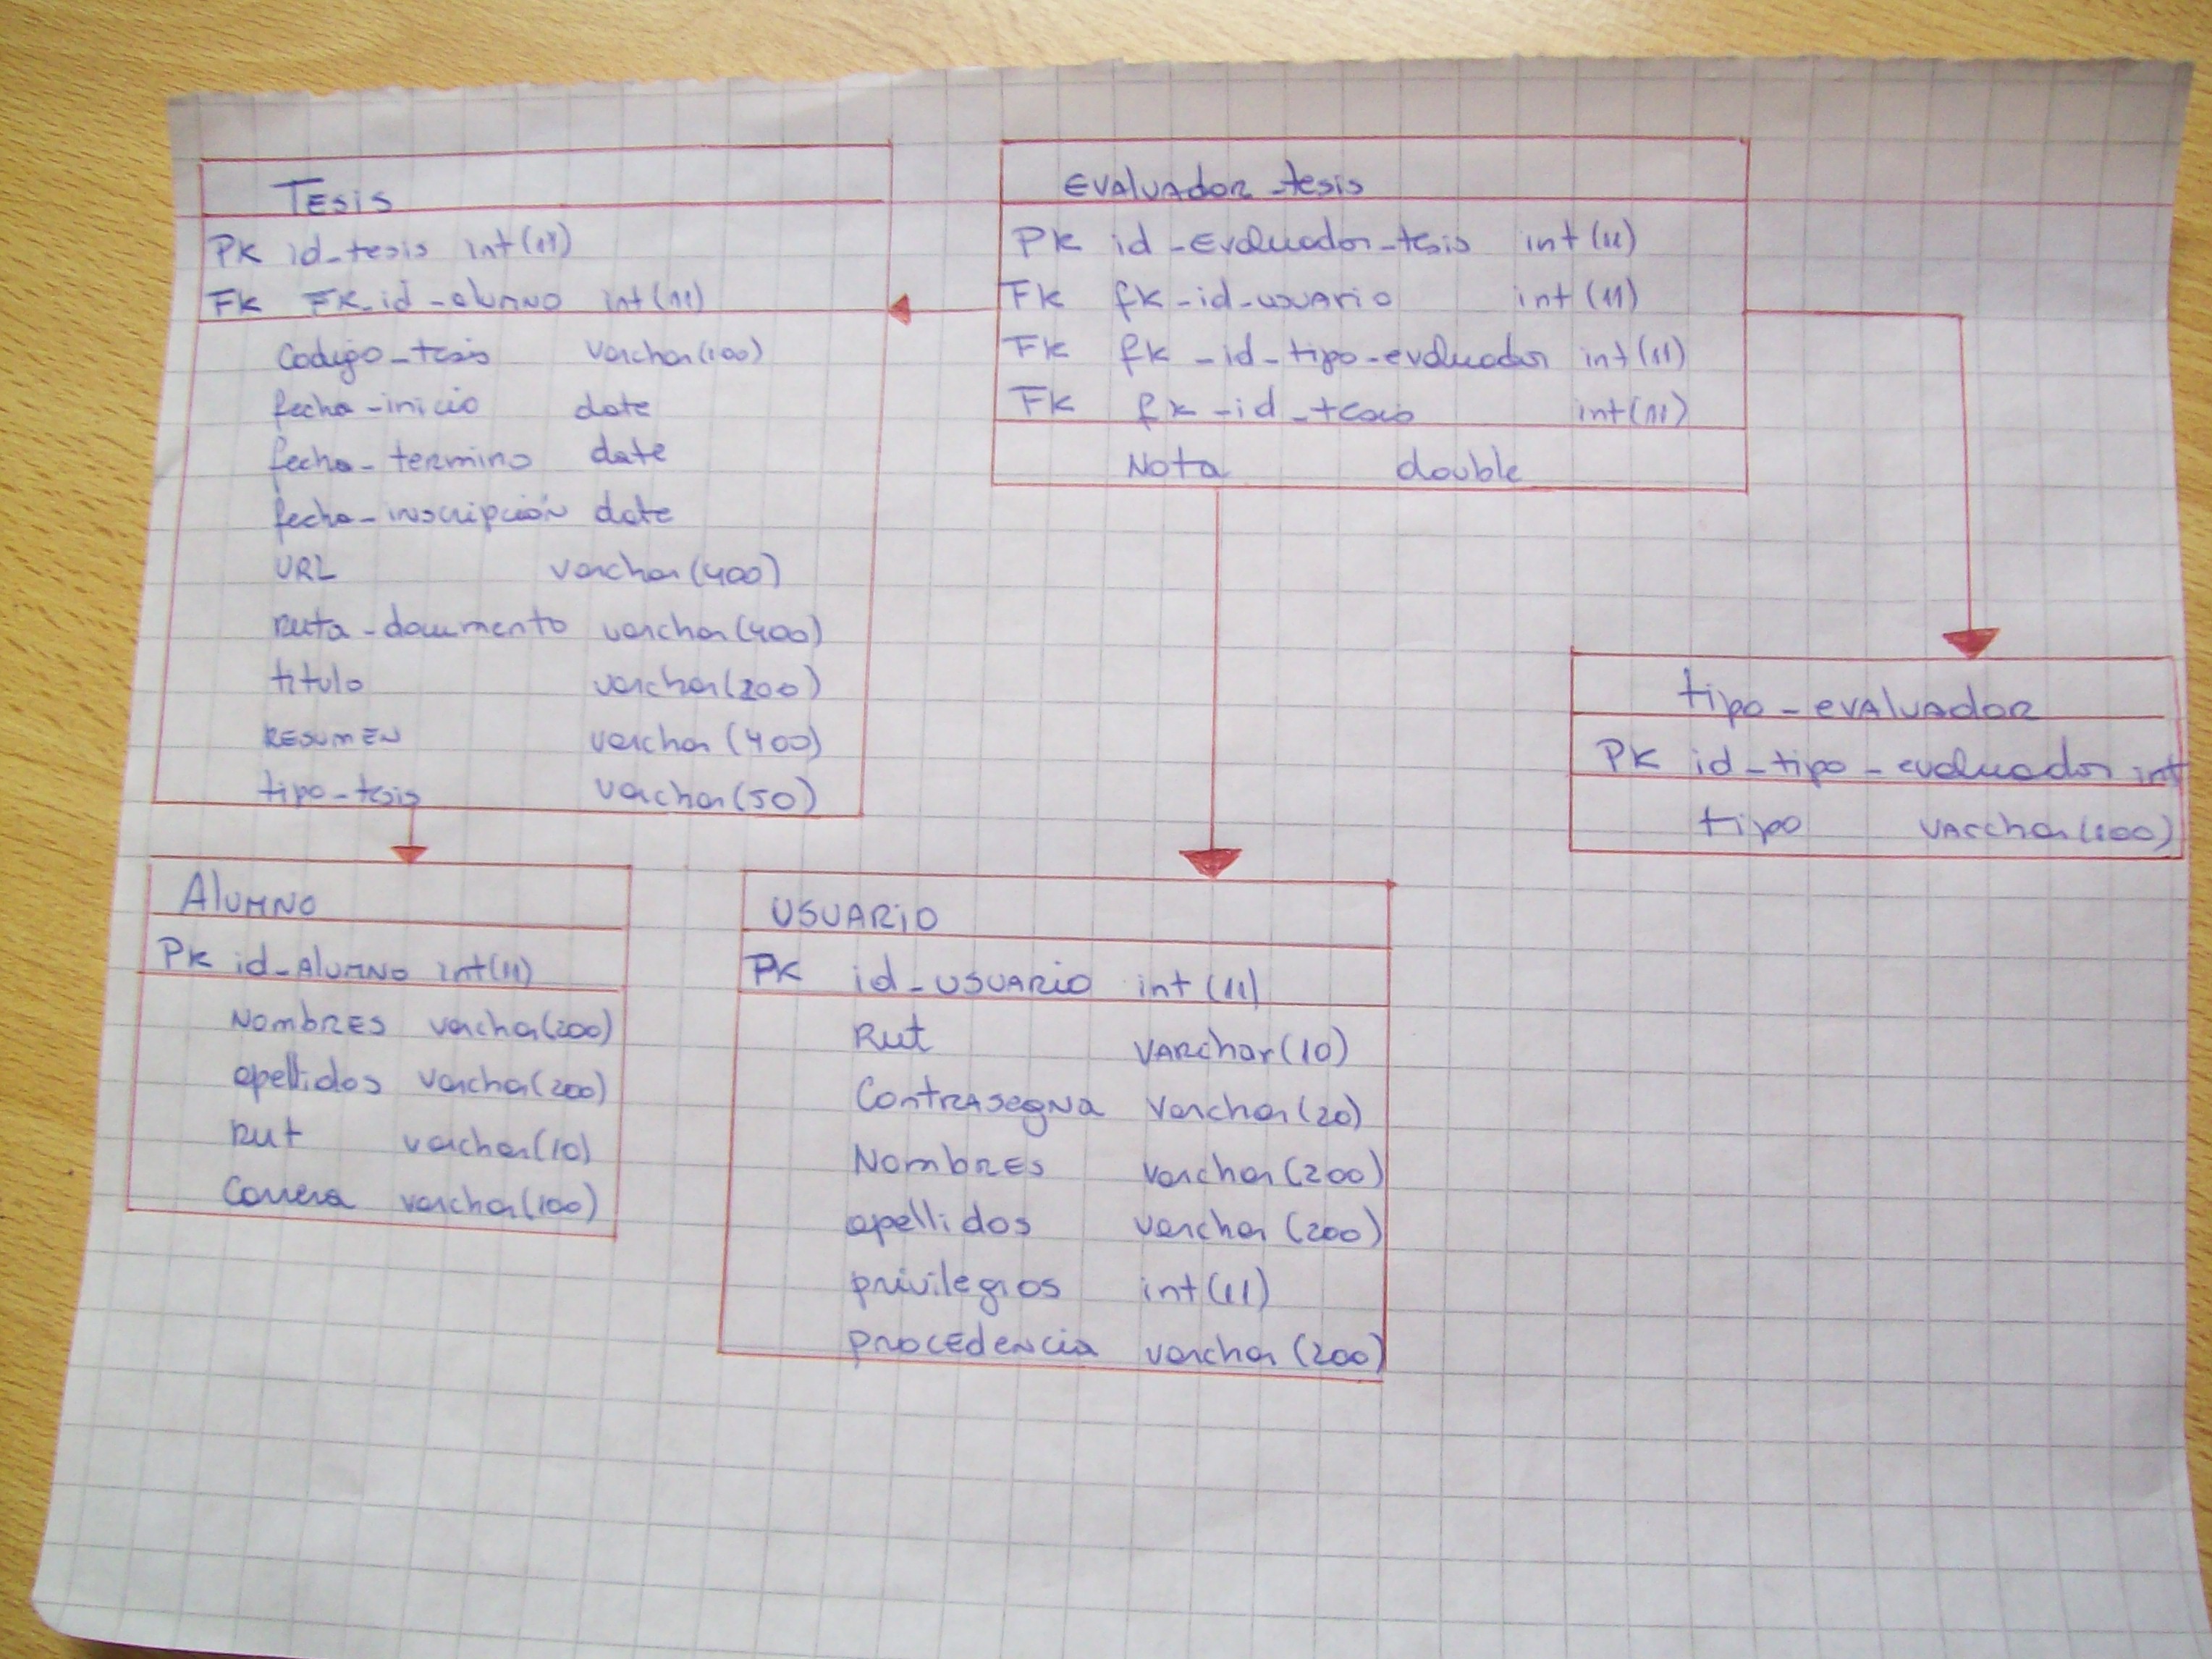 Tesis
PK id_tesis int(11)
FK FK_id_alumno int(11)
Codigo_tesis varchar(100)
fecha_inicio date
fecha_termino date
fecha_inscripción date
URL varchar(400)
ruta_documento varchar(400)
titulo varchar(200)
RESUMEN varchar(400)
tipo_tesis varchar(50)
Evaluador_tesis
PK id_Evaluador_tesis int(11)
FK fk_id_usuario int(11)
FK fk_id_tipo_evaluador int(11)
FK fk_id_tesis int(11)
Nota double
tipo_evaluador
PK id_tipo_evaluador int
tipo varchar(100)
Alumno
PK id_Alumno int(11)
Nombres varchar(200)
apellidos varchar(200)
Rut varchar(10)
Carrera varchar(100)
USUARIO
PK id_USUARIO int(11)
Rut varchar(10)
Contrasegna varchar(20)
Nombres varchar(200)
apellidos varchar(200)
privilegios int(11)
procedencia varchar(200)